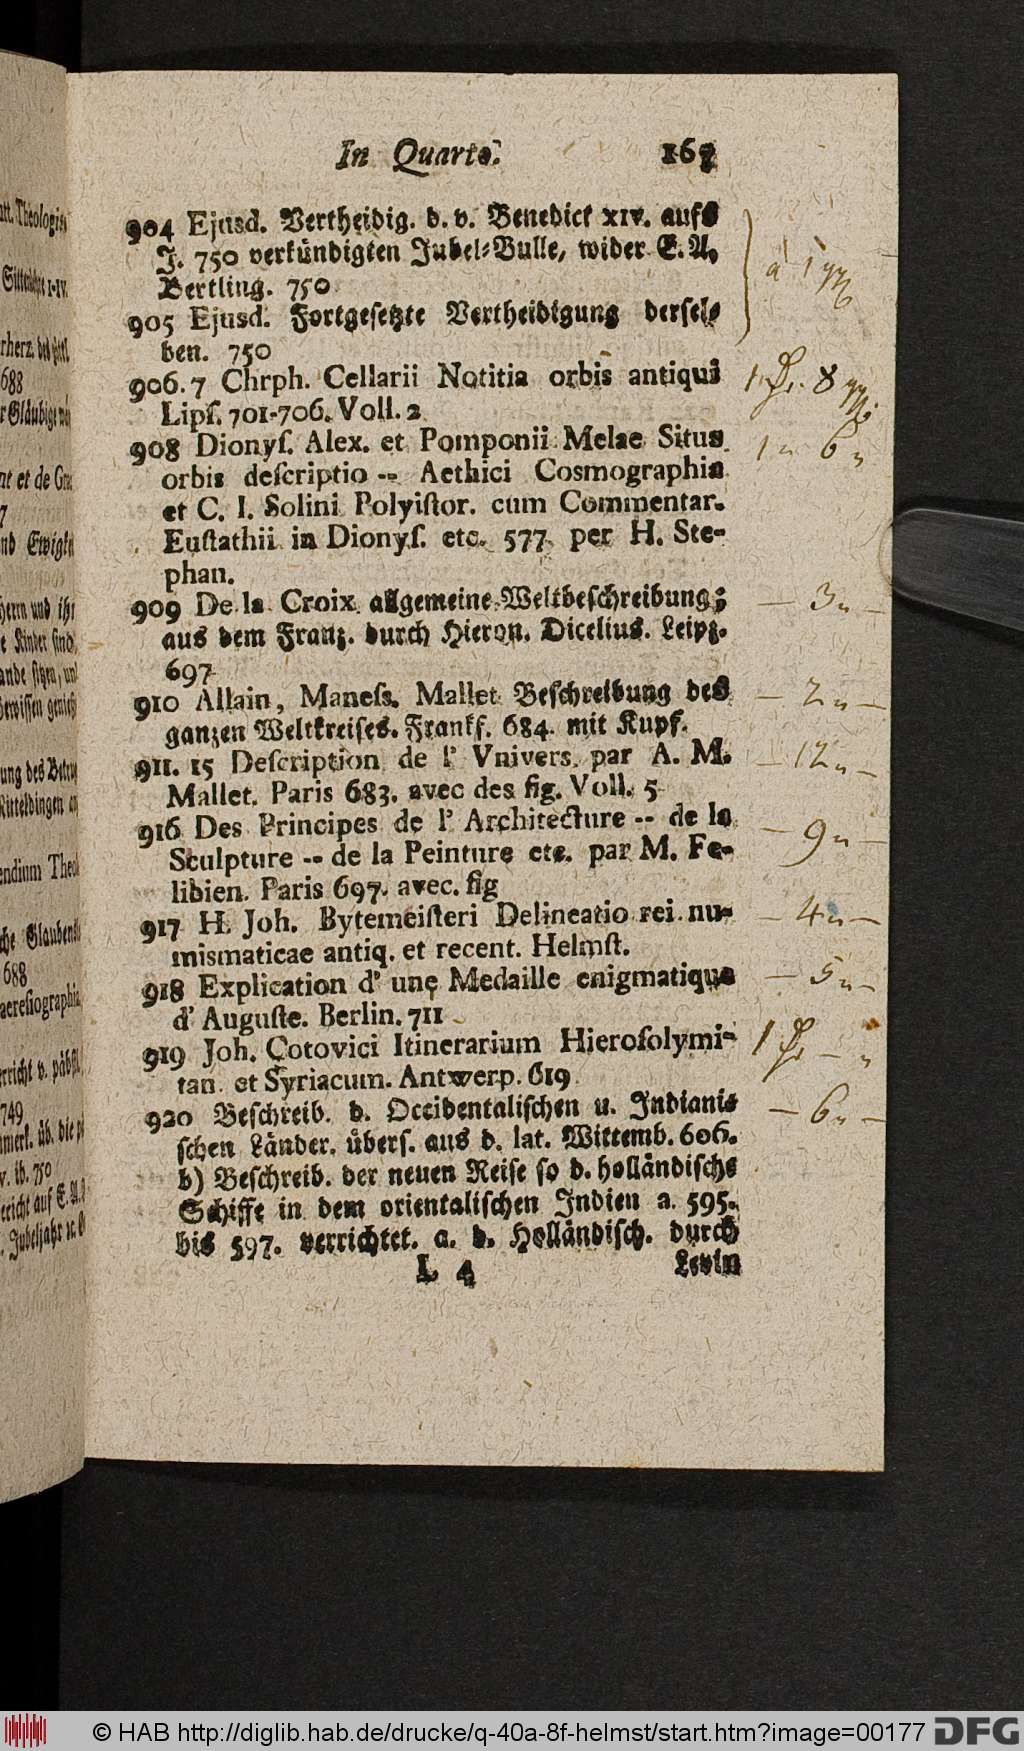 In Quarto. 167
904 Ejusd. Vertheidig. d. v. Benedict XIV. aufs
J. 750 verkündigten Jubel-Bulle, wider E. A.
Bertling. 750
à 1 ggr
905 Ejusd. Fortgesetzte Vertheidigung dersel-
ben. 750
906. 7 Chrph. Cellarii Notitia orbis antiqui
Lipſ. 701-706. Voll. 2
908 Dionyſ. Alex. et Pomponii Melae Situs
orbis deſcriptio -- Aethici Cosmographia
et C. I. Solini Polyiſtor. cum Commentar.
Euſtathii in Dionyſ. etc. 577 per H. Ste-
phan.
1 " 6 "
909 De la Croix allgemeine Weltbeschreibung;
aus dem Franz. durch Hieron. Dicelius. Leipz.
697
— 3 " —
910 Allain, Maneſs. Mallet Beschreibung des
ganzen Weltkreises. Frankf. 684. mit Kupf.
— 2 " —
911. 15 Deſcription de l' Vnivers. par A. M.
Mallet. Paris 683. avec des fig. Voll. 5
— 12 " —
916 Des Principes de l' Architecture -- de la
Sculpture -- de la Peinture etc. par M. Fe-
libien. Paris 697. avec. fig
— 9 " —
917 H. Joh. Bytemeiſteri Delineatio rei nu-
mismaticae antiq. et recent. Helmſt.
— 4 " —
918 Explication d' une Medaille enigmatique
d' Auguſte. Berlin. 711
— 5 " —
919 Joh. Cotovici Itinerarium Hieroſolymi-
tan. et Syriacum. Antwerp. 619
920 Beschreib. d. Occidentalischen u. Indiani-
schen Länder. übers. aus d. lat. Wittemb. 606.
b) Beschreib. der neuen Reise so d. holländische
Schiffe in dem orientalischen Indien a. 595.
bis 597. verrichtet. a. d. Holländisch. durch
— 6 " —
L 4 Levin
© HAB http://diglib.hab.de/drucke/q-40a-8f-helmst/start.htm?image=00177 DFG